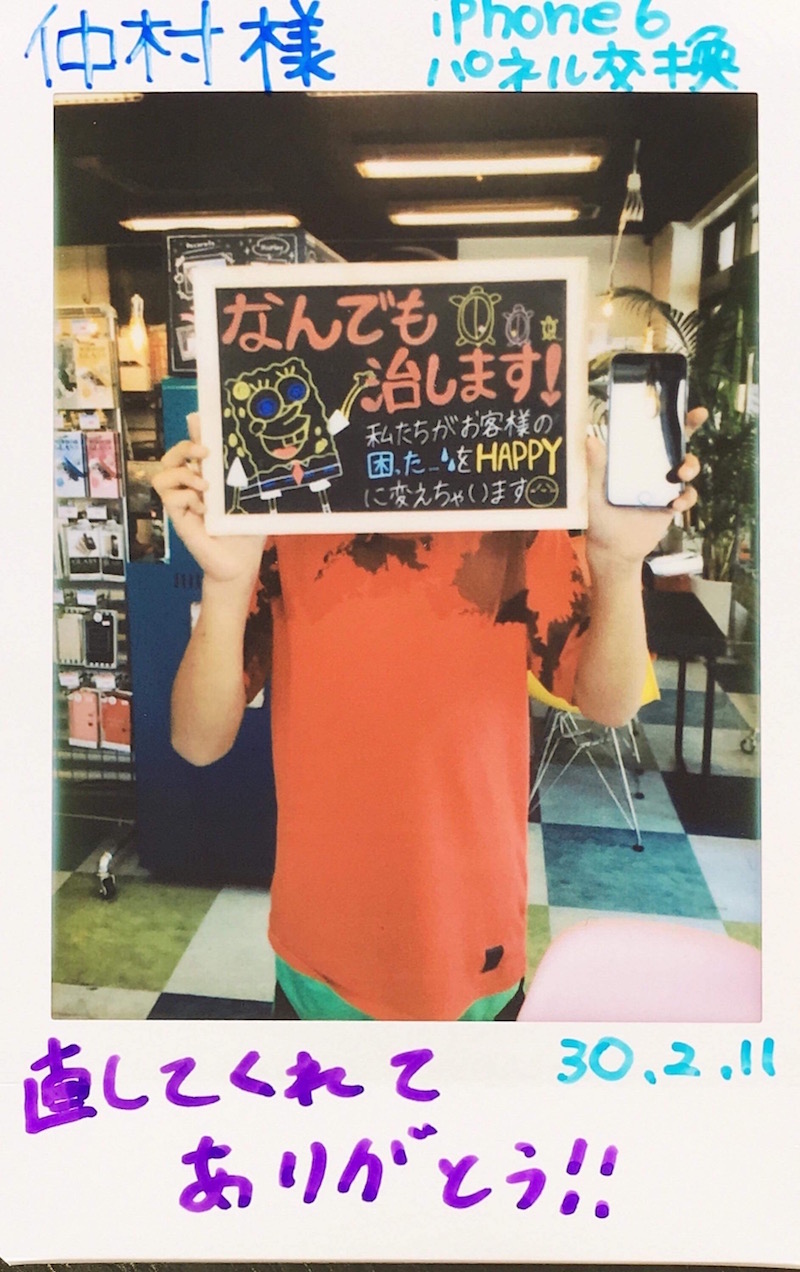 仲村様
iPhone6
パネル交換
なんでも
治します!
私たちがお客様の
困った…をHAPPY
に変えちゃいます
直してくれて
30.2.11
ありがとう!!